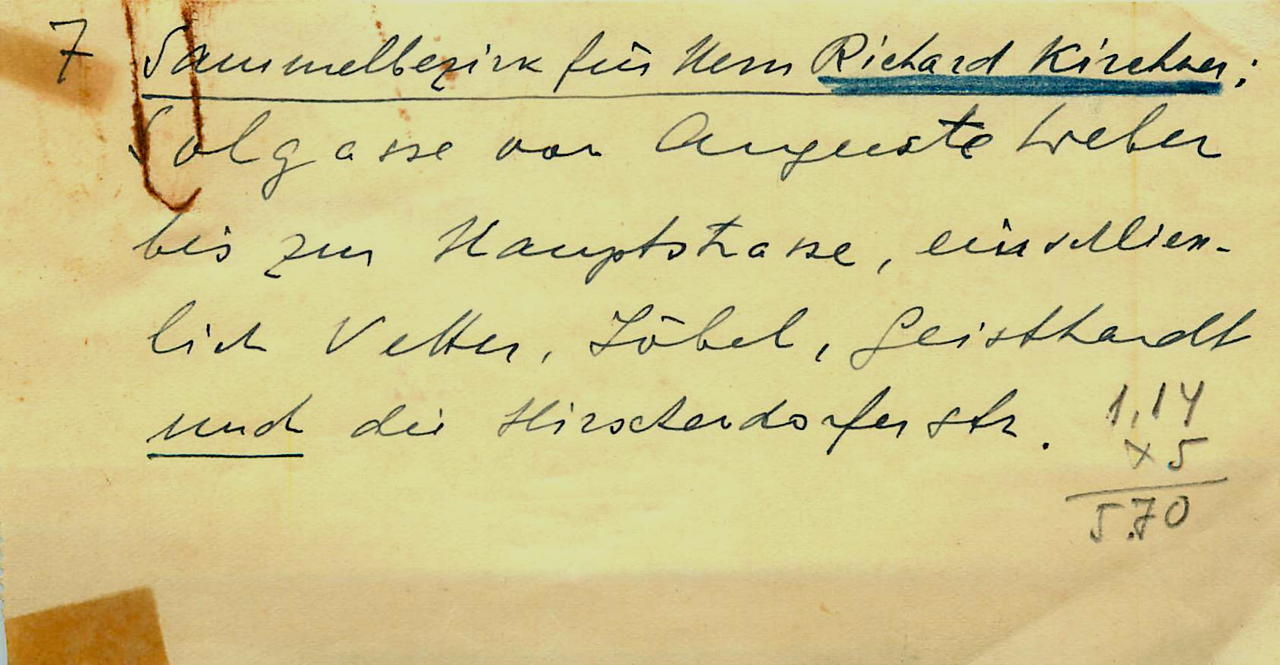 7 Sammelbezirk für Herrn Richard Kirchner;
Solgasse von Auguste Weber
bis zur Hauptstrasse, einschliess-
lich Vetter, Löbel, Geisthardt
und die Hirschendorferstr.
1,14
x 5
5.70